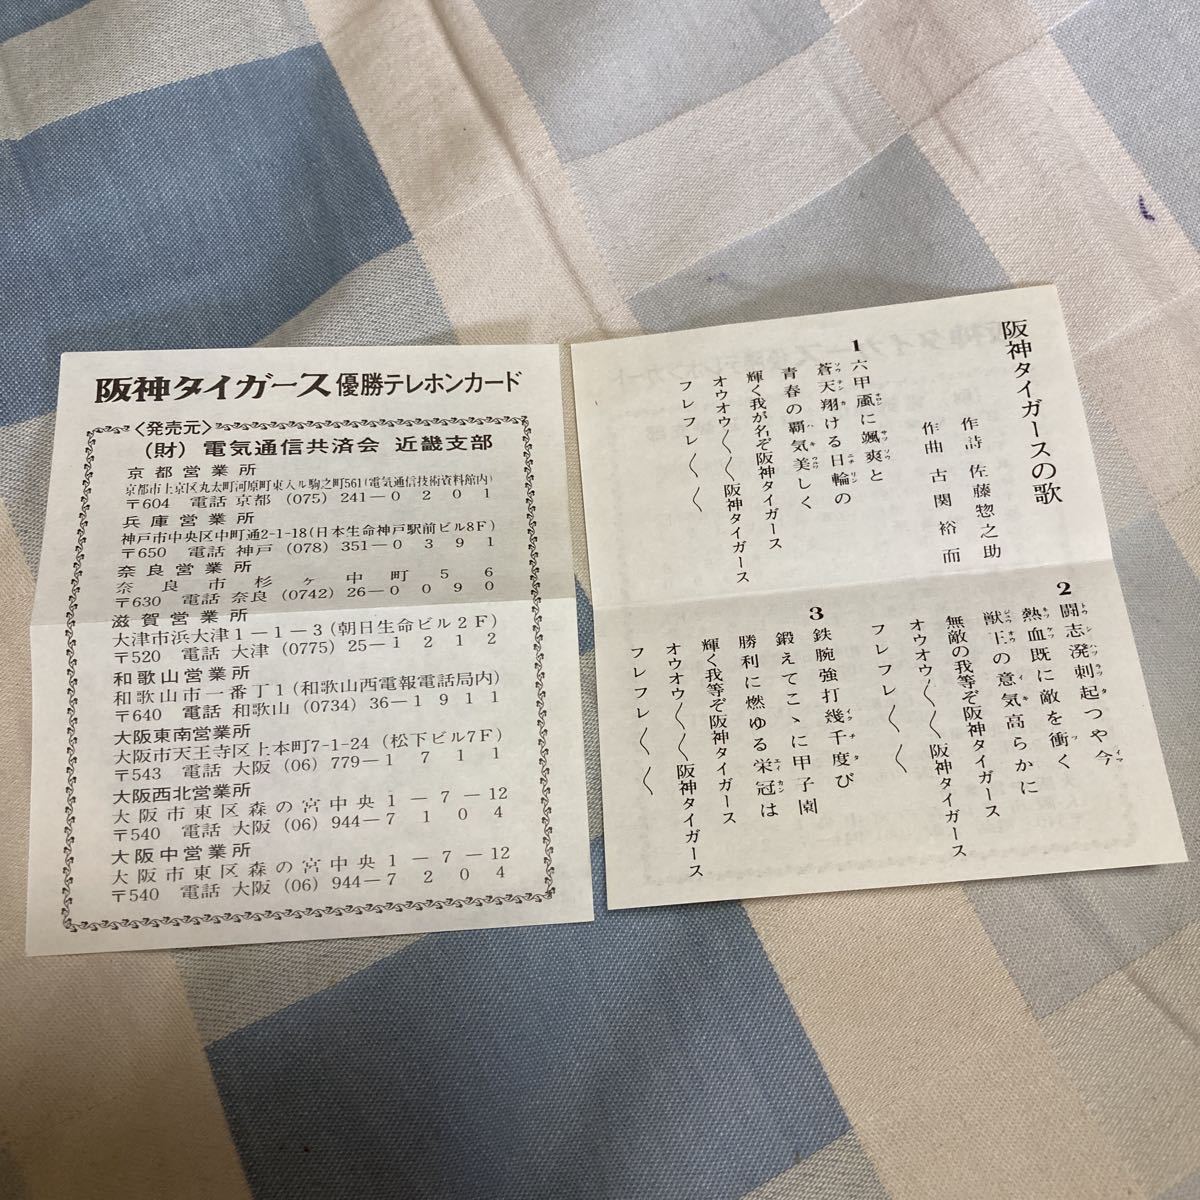 阪神タイガース優勝テレホンカード
<発売元>
(財) 電気通信共済会 近畿支部
京都営業所
京都市上京区丸太町河原町東入ル駒之町561(電気通信技術資料館内)
〒604 電話 京都 (075) 241-0201
兵庫営業所
神戸市中央区中町通2-1-18(日本生命神戸駅前ビル8F)
〒650 電話 神戸 (078) 351-0391
奈良営業所
奈良市杉ヶ中町56
〒630 電話 奈良 (0742) 26-0090
滋賀営業所
大津市浜大津1-1-3(朝日生命ビル2F)
〒520 電話 大津 (0775) 25-1212
和歌山営業所
和歌山市一番丁1(和歌山西電報電話局内)
〒640 電話 和歌山 (0734) 36-1911
大阪東南営業所
大阪市天王寺区上本町7-1-24(松下ビル7F)
〒543 電話 大阪 (06) 779-1711
大阪西北営業所
大阪市東区森の宮中央1-7-12
〒540 電話 大阪 (06) 944-7104
大阪中営業所
大阪市東区森の宮中央1-7-12
〒540 電話 大阪 (06) 944-7204
阪神タイガースの歌
作詩 佐藤惣之助
作曲 古関裕而
1 六甲颪に颯爽と
蒼天翔ける日輪の
青春の覇気美しく
輝く我が名ぞ阪神タイガース
オウオウ〱〱阪神タイガース
フレフレ〱〱
2 闘志溌剌起つや今
熱血既に敵を衝く
獣王の意気高らかに
無敵の我等ぞ阪神タイガース
オウオウ〱〱阪神タイガース
フレフレ〱〱
3 鉄腕強打幾千度び
鍛えてこゝに甲子園
勝利に燃ゆる栄冠は
輝く我等ぞ阪神タイガース
オウオウ〱〱阪神タイガース
フレフレ〱〱